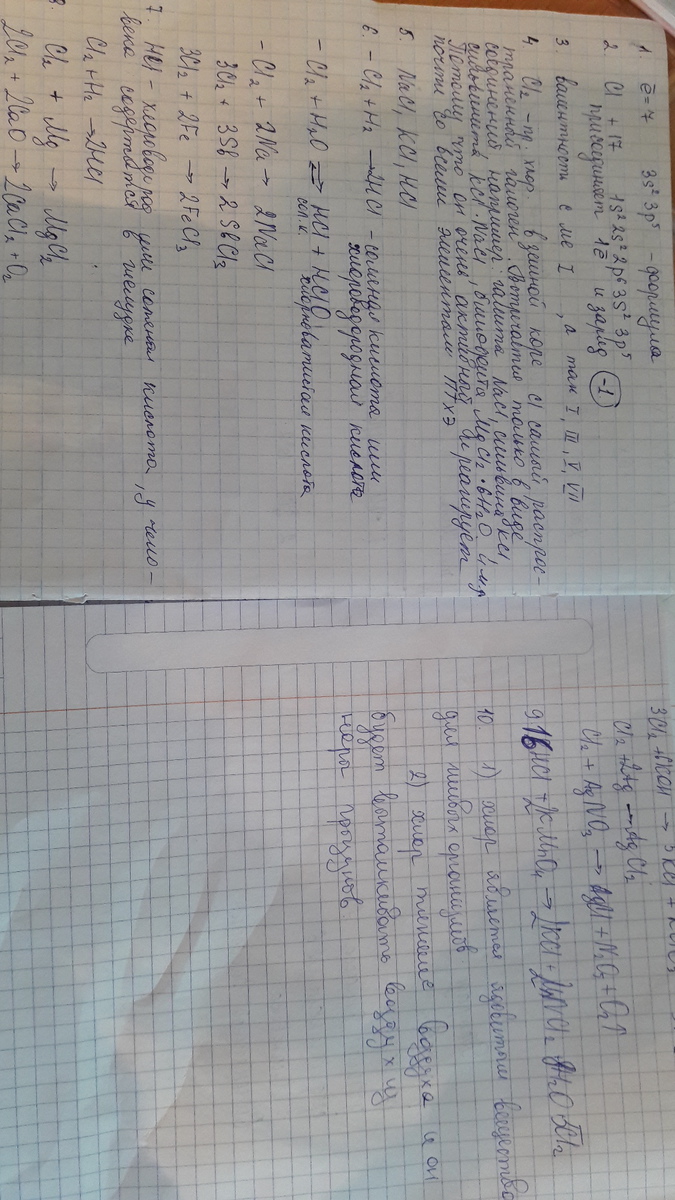 1. ē = 7 3s² 3p⁵ - формула
2. Cl + 17 1s² 2s² 2p⁶ 3s² 3p⁵
присоединяет 1ē и заряд (-1)
3 валентность с ме I, а так I, III, V, VII
4. Cl₂ - хлор. в земной коре Cl самый распрос-
траненный галоген. Встречается только в виде
соединений например: галита NaCl, сильвина KCl
сильвинита KCl·NaCl, бишофита MgCl₂·6H₂O и др
Потому что он очень активный и реагирует
почти со всеми элементами ПТХЭ
5. NaCl, KCl, HCl
6. - Cl₂ + H₂ → 2HCl - соляная кислота или
хлороводородная кислота
- Cl₂ + H₂O ⇌ HCl + HClO
сол. к. хлорноватистая кислота
- Cl₂ + 2Na → 2NaCl
3Cl₂ + 3Sb → 2SbCl₃
3Cl₂ + 2Fe → 2FeCl₃
7. HCl - хлороводород или соляная кислота, у чело-
века содержится в желудке
Cl₂ + H₂ → 2HCl
8. Cl₂ + Mg → MgCl₂
2Cl₂ + 2CaO → 2CaCl₂ + O₂
3Cl₂ + 6KOH → 5KCl +
Cl₂ + 2Ag → AgCl₂
Cl₂ + AgNO₃ → + N₂O₅ + O₂↑
9. 16HCl + 2KMnO₄ → 2KCl +
10. 1) хлор является ядовитым вещество
для живых организмов
2) хлор тяжелее воздуха и он
будет выталкивать воздух из